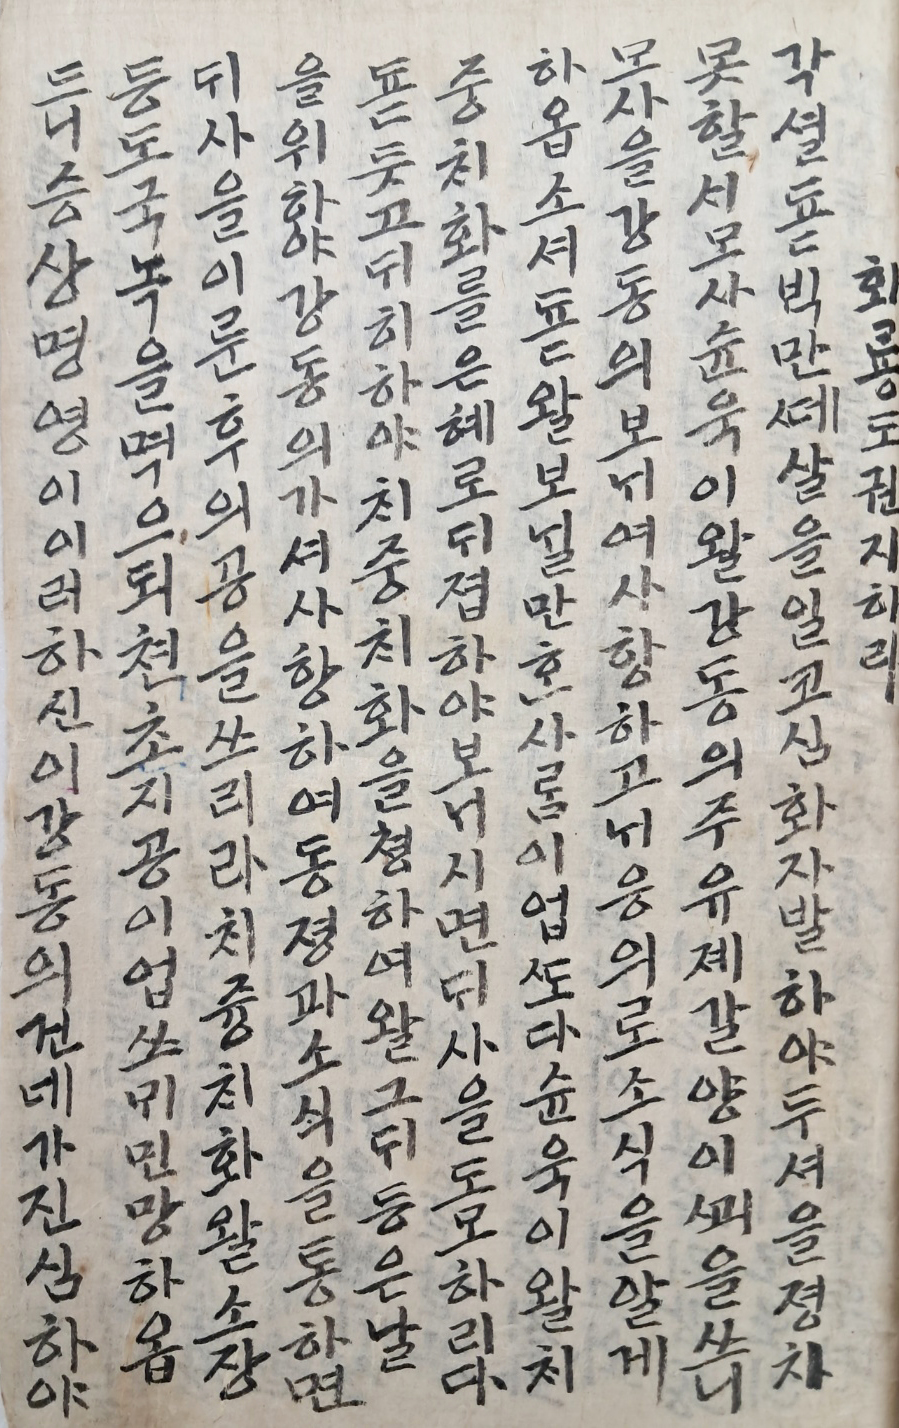 화룡도권지하리
각셜됴됴빅만쎄살을일고심화자발하야두셔을졍치
못할셔모사슌욱이왈강동의주유졔갈양이쐬을쓰니
모사을강동의보뉘여사항하고뉘응의로소식을알게
하옵소셔됴됴왈보닐만흔사름이업또다슌욱이왈치
중치화를은혜로뒤졉하야보니시면뒤사을도모하리다
됴됴듯고뒤히하야치중치화을쳥하여왈그뒤등은날
을위하야강동의가셔사항하여동졍과소식을통하면
뒤사을이룬후의공을쓰리라치즁치화왈소장
등도국녹을먹으되쳔초지공이업쓰믜민망하옵
드니증상명영이이러하신이강동의건네가진심하야